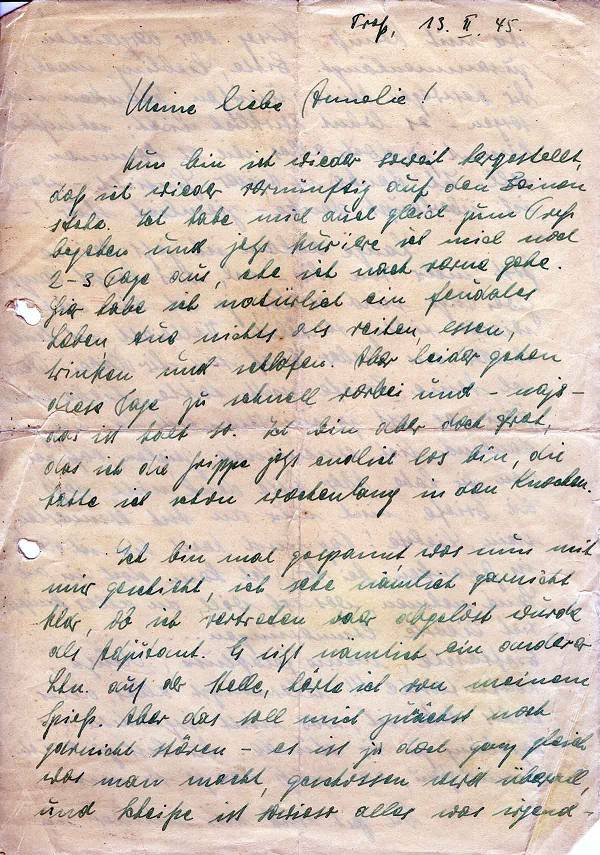 Troß, 13. II. 45.
Meine liebe Annelie!
Nun bin ich wieder soweit hergestellt,
daß ich wieder vernünftig auf den Beinen
stehe. Ich habe mich auch gleich zum Troß
begeben und jetzt kuriere ich mich noch
2-3 Tage aus, ehe ich nach vorne gehe.
Hier habe ich natürlich ein feudales
Leben aus nichts als reiten, essen,
trinken und schlafen. Aber leider gehen
diese Tage zu schnell vorbei und - naja -
das ist halt so. Ich bin aber doch froh,
das ich die Grippe jetzt endlich los bin, die
hatte ich schon wochenlang in den Knochen.
Ich bin mal gespannt, was nun mit
mir geschieht, ich sehe nämlich garnicht
klar, ob ich vertreten oder abgelöst wurde
als Adjutant. Es sitzt nämlich ein anderer
Ltn. auf der Stelle, hörte ich von meinem
Spieß. Aber das soll mich zunächst noch
garnicht stören - es ist ja doch ganz gleich
was man macht, geschossen wird überall,
und scheiße ist sowieso alles was irgend-